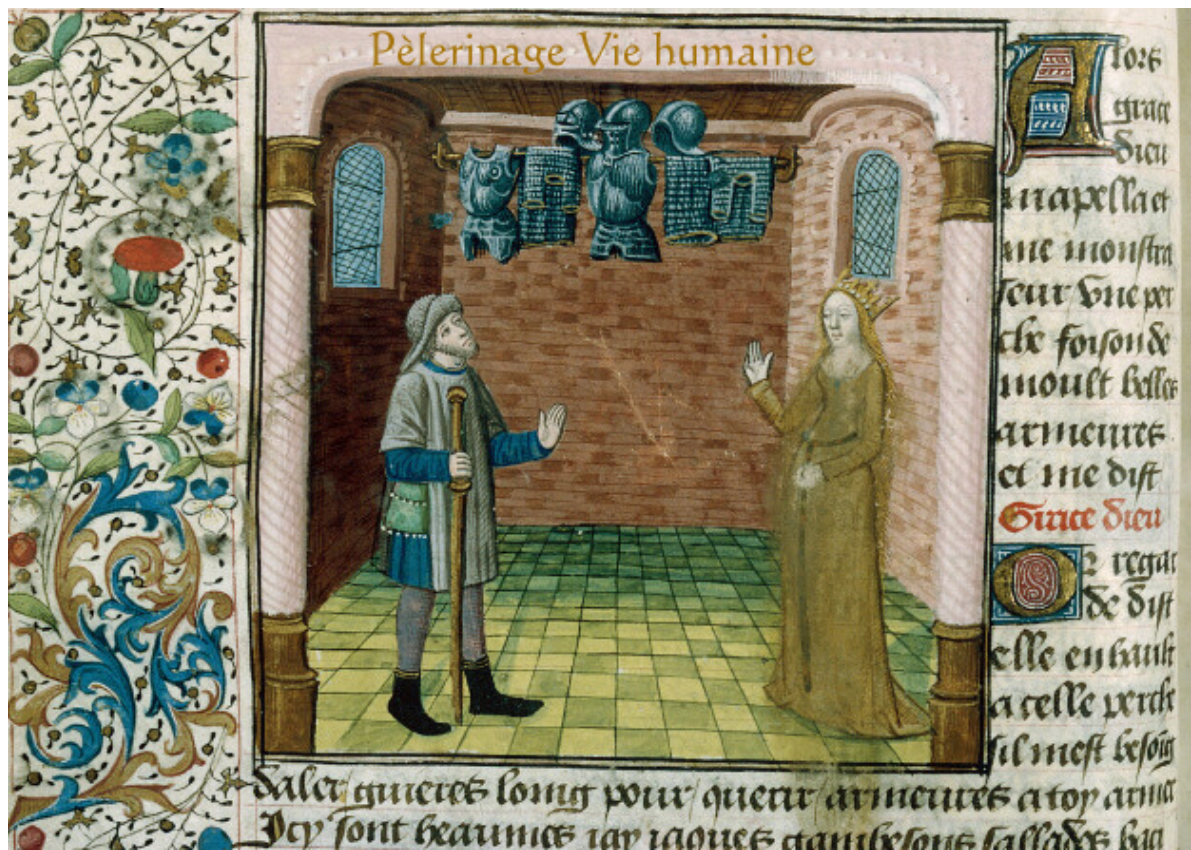 Pèlerinage Vie humaine
Alors
grace
dieu
mapella et
me monstra
seur vne per
che foison de
moult belles
armeures
et me dist
Grace dieu
Or regar
de dist
elle en hault
a celle perche
sil mest besoing
daler guieres loing pour querir armeures a toy armer
Icy sont heaumes iaques gambesons sallades